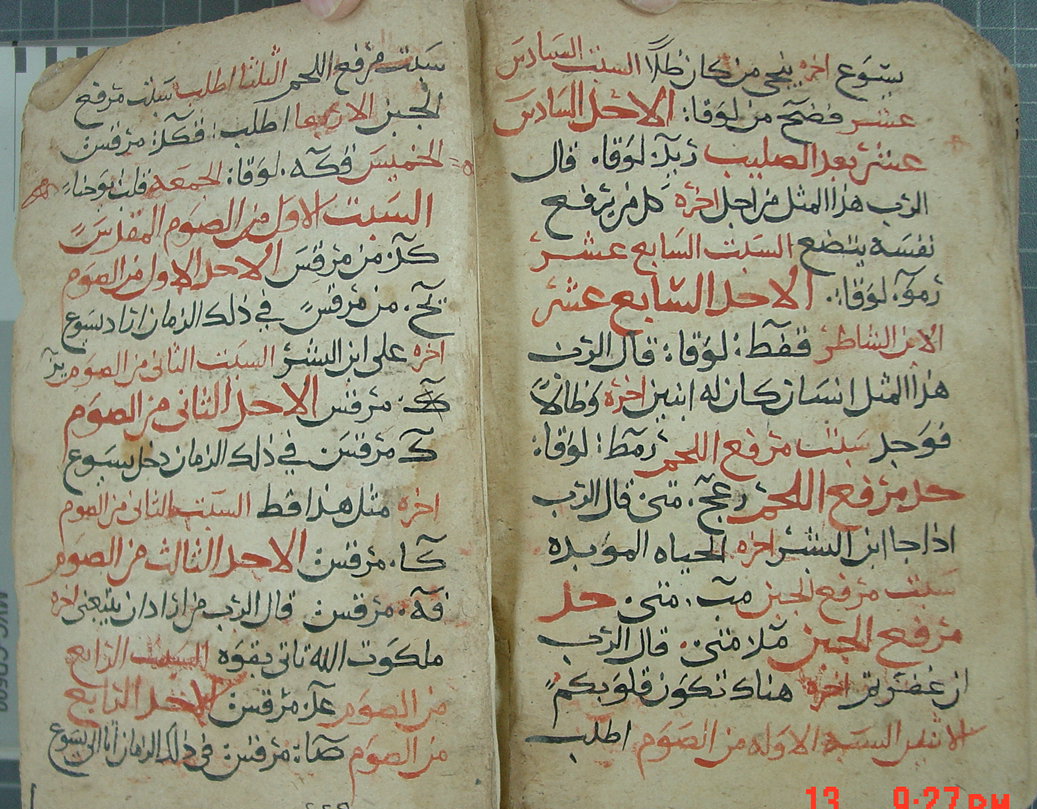 يسوع اخره ينجى من كان ظلاً السبت السادس
عشر فصح من لوقا: الاحد السادس
عشر بعد الصليب لوقا. قال
الرب هذا المثل من اجل اخره كل من يرفع
نفسه يتضع السبت السابع عشر
لوقا: الاحد السابع عشر
الابن الشاطر لوقا: قال الرب
هذا المثل انسان كان له ابنين اخره وظالاً
فوجد سبت مرفع اللحم لوقا:
حد مرفع اللحم متى. قال الرب
اذا جا ابن البشر اخره الحياه الموبده
سبت مرفع الجبن متى. حد
مرفع الجبن متى. قال الرب
ان غفرتم اخره هناك تكون قلوبكم
الاثنين السبة الاوله من الصوم اطلب
سبت مرفع اللحم الثلثا اطلب سبت مرفع
الجبن الاربعا اطلب: مرقس
الخميس لوقا: الجمعه يوحنا
السبت الاول من الصوم المقدس
من مرقس الاحد الاول من الصوم
من مرقس في ذلك الزمان اراد يسوع
اخره على ابن البشر السبت الثانى من الصوم
مرقس الاحد الثانى من الصوم
مرقس في ذلك الزمان دخل يسوع
اخره مثل هذا قط السبت الثالث من الصوم
كا. مرقس: الاحد الثالث من الصوم
مرقس: قال الرب من اراد ان يتبعنى اخره
ملكوت الله تاتى بقوه السبت الرابع
من الصوم مرقس: الاحد الرابع
من الصوم مرقس: في ذلك الزمان اتا الى يسوع
13 9:27 PM